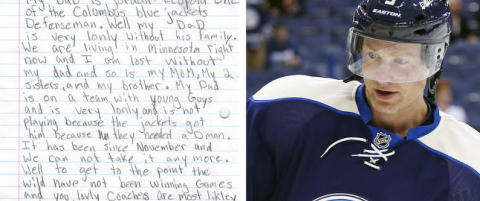 My Dad is Jordan Leopold one
of the Columbus blue jackets
Defenseman. Well my Dad
is very lonly without his family.
We are living in Minnesota right
now and I am lost without
my dad and so is my MoM, My 2
sisters, and my brother. My Dad
is on a team with young Guys
and is very lonly and is not
playing because the jackets got
him because they needed a Dman.
It has been since November and
we can not take it any more.
Well to get to the point the
Wild have not been winning Games
and you lovly Coaches are most likley
EASTON
NHL